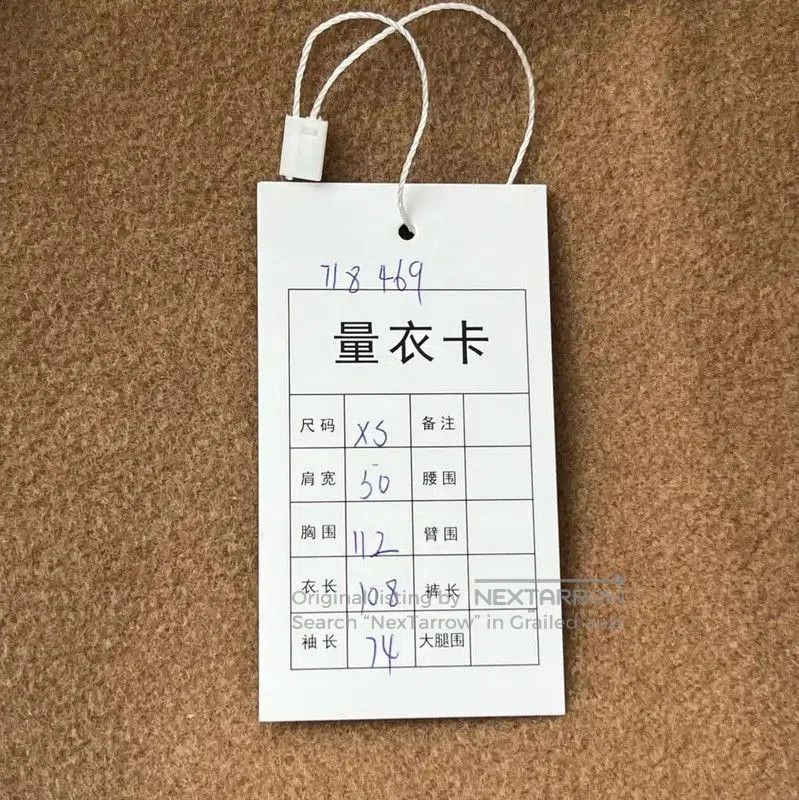 718 469
量衣卡
尺码 XS 备注
肩宽 50 腰围
胸围 112 臂围
衣长 108 裤长
袖长 74 大腿围
Original listing by NEXTARROW
Search "NexTarrow" in Grailed app